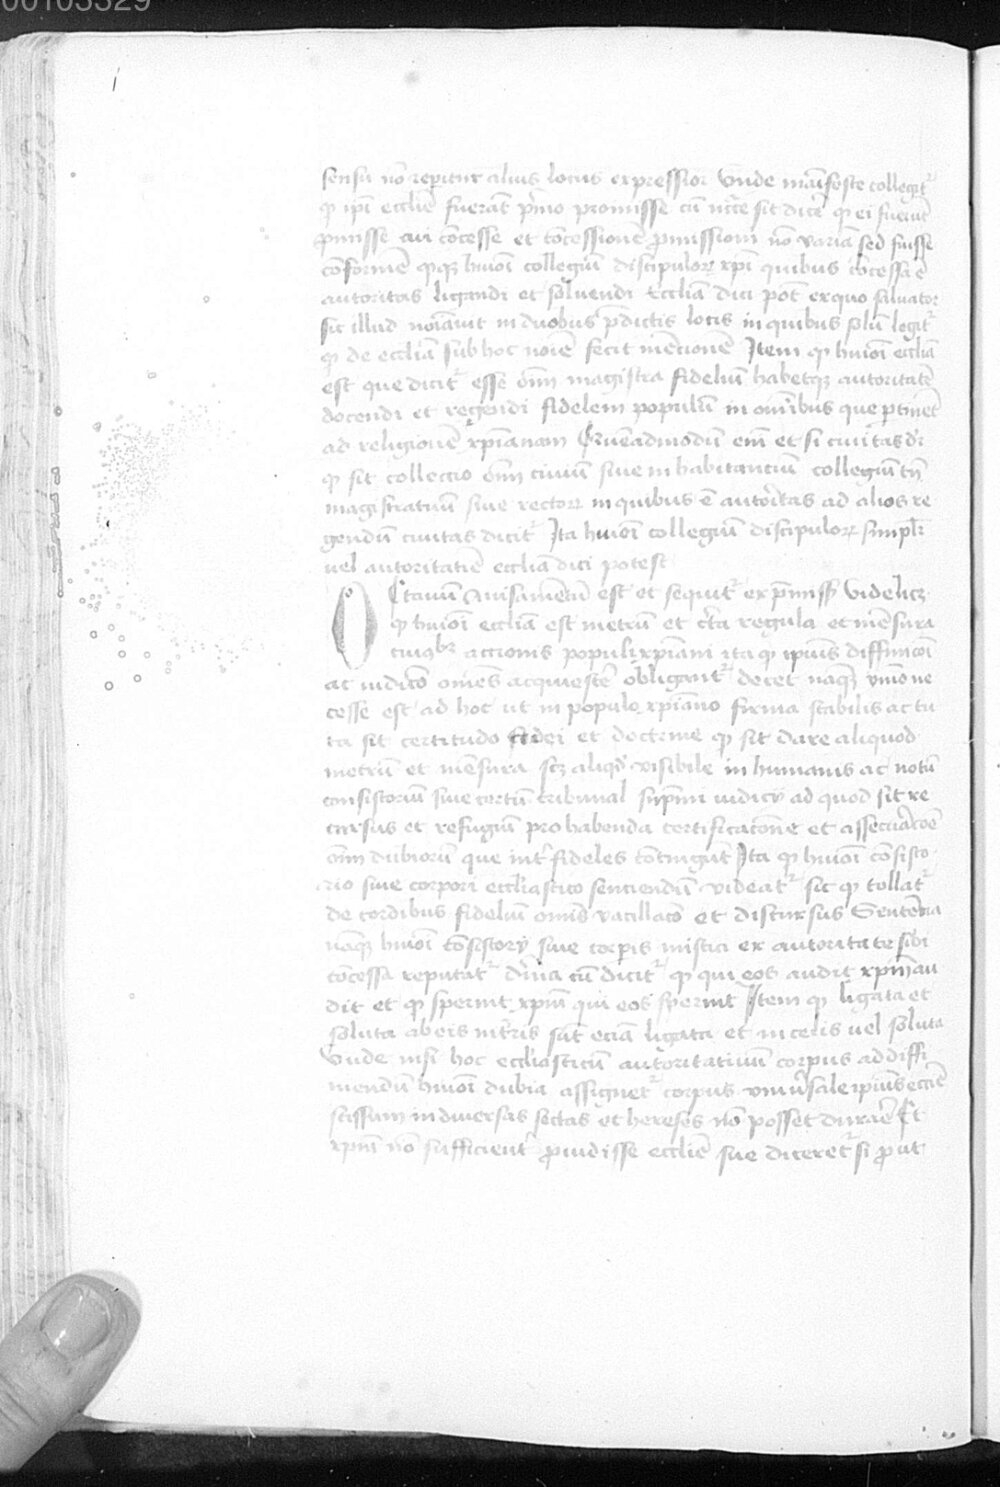 00103329
sensu nō reperitur alius locus expressior Vnde manifeste collegit᷑
qͥ ipi ecclie fuerat p̄mo promisse cū nctē sit dicē qͥ ei fuerit
ꝓmisse cui cōcesse et cōcessionē ꝓmissioni nō variā sed fuisse
cōformē qꝫ huiōi collegiū discipuloꝝ xp̄i quibus cōcessa ē
autoritas ligandi et soluendi Eccliā dici pōt exquo saluator
sic illud noīauit in duobus p̄dictis locis in quibus solū legit᷑
qͥ de ecclia sub hoc noīe fecit mēcionē Item qͥ huiōi ecclia
est que dicit᷑ esse oīm magistra fidelium habetqꝫ autoritatē
docendi et regendi fidelem populū in omībus que ptinēt
ad religionē xp̄ianam Quēadmodū enī et si ciuitas dr̄
qͥ sit collectio oīm ciuium siue inhabitanciū collegiū tn̄
magistratuū siue rectoꝝ in quibus ē autōitas ad alios re
gendū ciuitas dicit᷑ Ita huiōi collegiū discipuloꝝ simplr̄
uel autoritatiē ecclia dici potest
OCtauū Auisamentū est et sequit᷑ ex p̄miss̄ videlicꝫ
qͥ huiōi ecclia est metrū et c̄ta regula et mēsura
cuiuslibꝫ actionis populi xp̄iani ita qͥ ipius diffinicōi
ac iudicō omēs acquiescē obligant᷑ decet naqꝫ ymo ne
cesse est ad hoc ut in populo xp̄iano firma stabilis ac tu
ta sit certitudo fidei et doctrine qͥ sit dare aliquod
metrū et mēsura scꝫ aliqd̄ visibile in humanis ac notū
consistoriū siue certū tribunal sup̄mi iudicij ad quod sit re
cursus et refugiū pro habenda certificacōne et assecuracōe
oīm dubiorū que int̄ fideles cōtingūt Ita qͥ huiōi cōsisto
rio siue corpori eccliastico senciendū videat᷑ sic qͥ tollat᷑
de cordibus fidelium omīs vacillacō et discursus Sentēcia
naqꝫ huiōi cōsistorij siue corporis mistici ex autoritate sibi
cōcessa reputat᷑ diuina cū dicit᷑ qͥ qui eos audit xp̄m au
dit et qͥ spernit xp̄m qui eos spernit Item qͥ ligata et
soluta ab eis in tr̄ris sūt eciā ligata et in celis uel soluta
Vnde nisi hoc eccliasticū autoritatiuū corpus ad diffi
niendū huiōi dubia assignet᷑ corpus vniuersale ipius ecclie
scissum in diuersas sectas et hereses nō posset durare Et
xp̄m nō sufficient̄ ꝓuidisse ecclie sue diceret᷑ si ꝓut